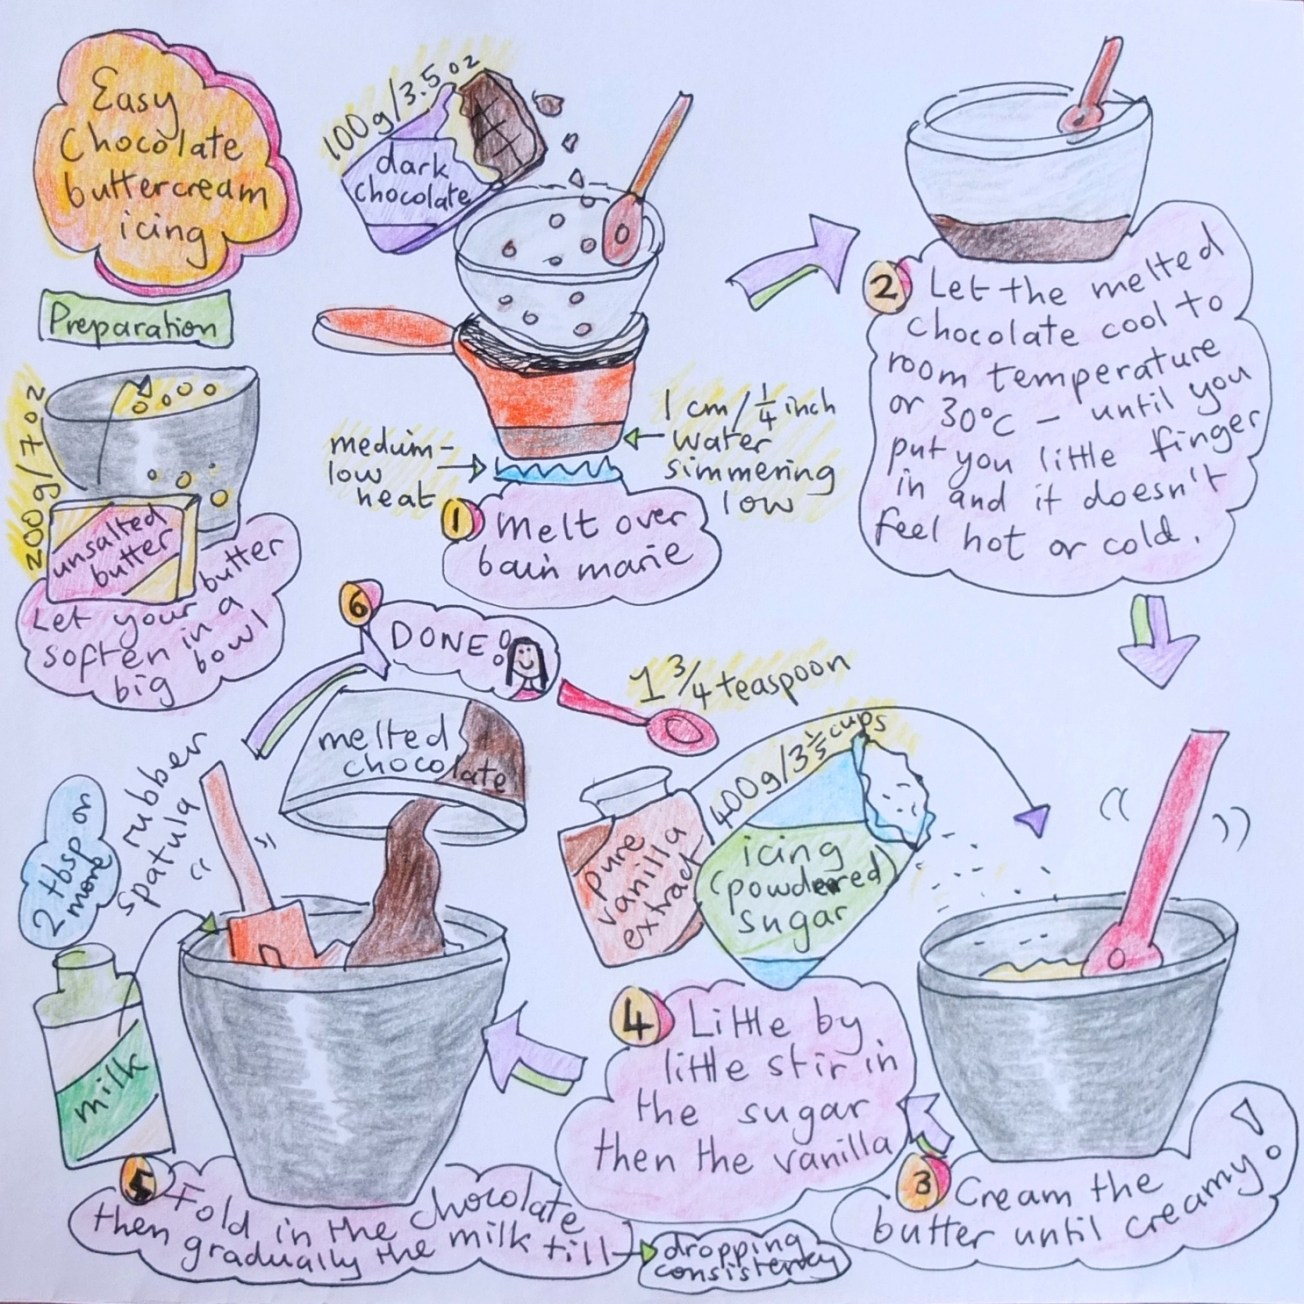 Easy
Chocolate
buttercream
icing
Preparation
200g/7oz
unsalted
butter
Let your butter
soften in a
big bowl
100g/3.5oz
dark
chocolate
medium-
low
heat
1 cm/¼ inch
water
simmering
low
1 Melt over
bain marie
2 Let the melted
chocolate cool to
room temperature
or 30°C – until you
put you little finger
in and it doesn't
feel hot or cold.
3 Cream the
butter until creamy!
1 ¾ teaspoon
pure
vanilla
extract
400g/3⅕ cups
icing
(powdered)
sugar
4 Little by
little stir in
the sugar
then the vanilla
melted
chocolate
rubber
spatula
2 tbsp or
more
milk
5 Fold in the chocolate
then gradually the milk till
dropping
consistency
6 DONE!